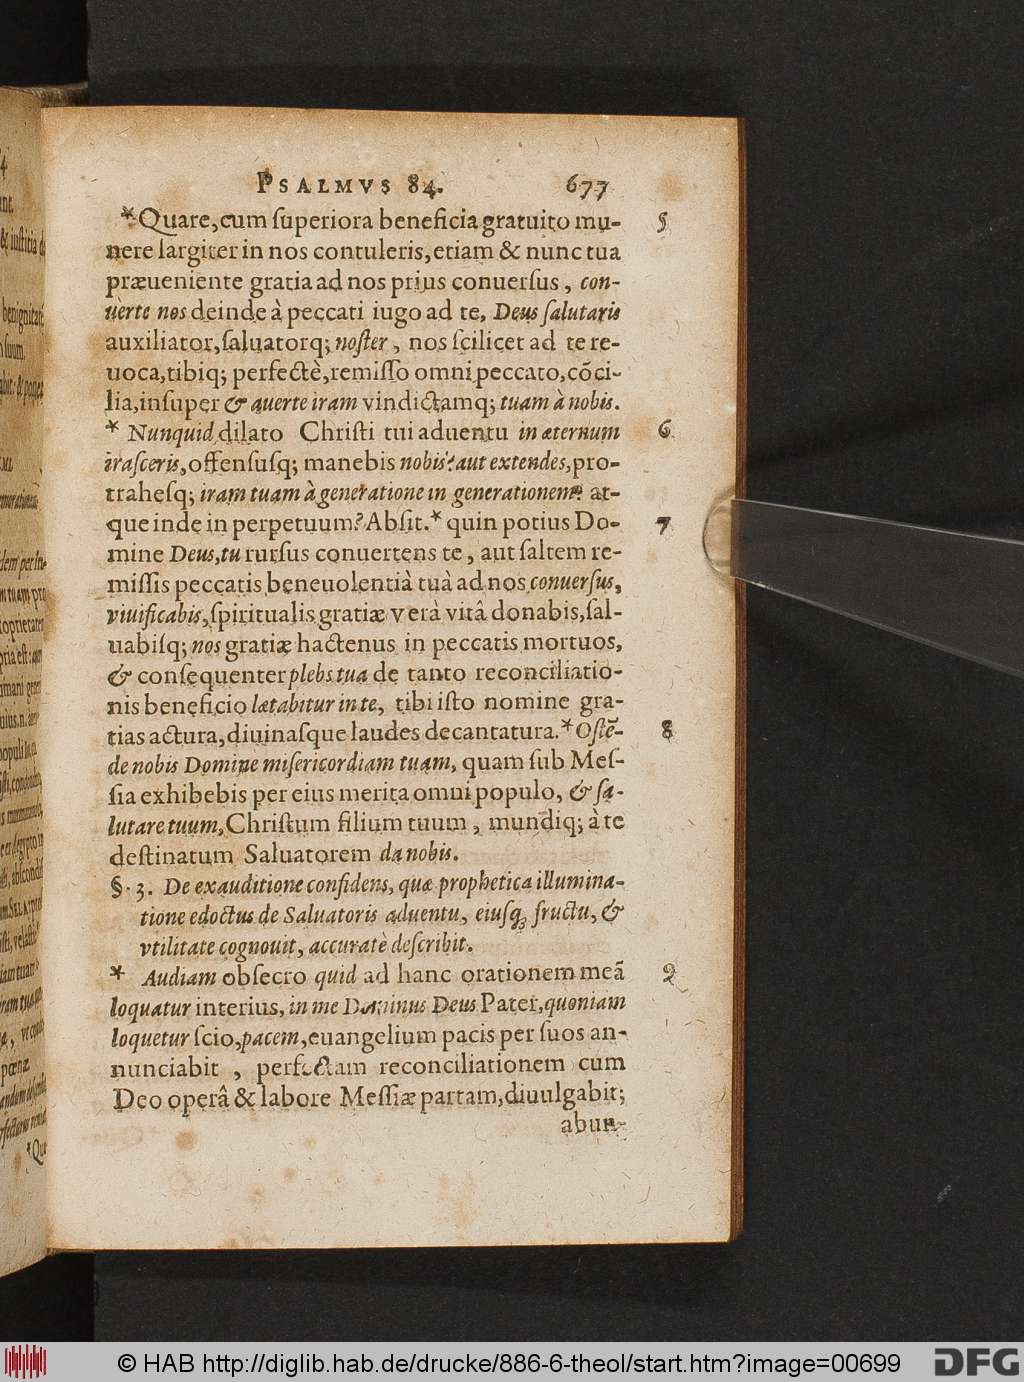 PSALMVS 84. 677
*Quare,cum ſuperiora beneficia gratuito mu- 5
nere largiter in nos contuleris, etiam & nunc tua
præueniente gratia ad nos prius conuerſus, con-
uerte nos deinde à peccati iugo ad te, Deus ſalutaris
auxiliator,ſaluatorq; noſter, nos ſcilicet ad te re-
uoca,tibiq; perfectè,remiſſo omni peccato,cōci-
lia,inſuper & auerte iram vindictamq; tuam à nobis.
* Nunquid dilato Chriſti tui aduentu in æternum 6
iraſceris,offenſuſq; manebis nobis? aut extendes,pro-
traheſq; iram tuam à generatione in generationem? at-
que inde in perpetuum? Abſit.* quin potius Do- 7
mine Deus,tu rurſus conuertens te, aut ſaltem re-
miſſis peccatis beneuolentiâ tuâ ad nos conuerſus,
viuificabis,ſpiritualis gratiæ verà vitâ donabis,ſal-
uabiſq; nos gratiæ hactenus in peccatis mortuos,
& conſequenter plebs tua de tanto reconciliatio-
nis beneficio lætabitur in te, tibi iſto nomine gra-
tias actura,diuinaſque laudes decantatura.* Oſtē- 8
de nobis Domine miſericordiam tuam, quam ſub Meſ-
ſia exhibebis per eius merita omni populo, & ſa-
lutare tuum,Chriſtum filium tuum, mundiq; à te
deſtinatum Saluatorem da nobis.
§. 3. De exauditione confidens, quæ prophetica illumina-
tione edoctus de Saluatoris aduentu, eiuſq; fructu, &
vtilitate cognouit, accuratè deſcribit.
* Audiam obſecro quid ad hanc orationem meā 9
loquatur interius, in me Dominus Deus Pater,quoniam
loquetur ſcio,pacem,euangelium pacis per ſuos an-
nunciabit, perfectam reconciliationem cum
Deo operâ & labore Meſſiæ partam,diuulgabit;
abun-
© HAB http://diglib.hab.de/drucke/886-6-theol/start.htm?image=00699
DFG